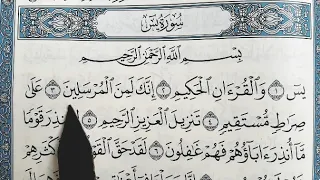 سُورَةُ يسٓ
بِسْمِ اللَّهِ الرَّحْمَٰنِ الرَّحِيمِ
يسٓ ١ وَالْقُرْءَانِ الْحَكِيمِ ٢ إِنَّكَ لَمِنَ الْمُرْسَلِينَ ٣ عَلَىٰ
صِرَاطٍ مُّسْتَقِيمٍ ٤ تَنزِيلَ الْعَزِيزِ الرَّحِيمِ ٥ قَوْمًا
مَّا أُنذِرَ ءَابَاؤُهُمْ فَهُمْ غَٰفِلُونَ ٦ لَقَدْ حَقَّ